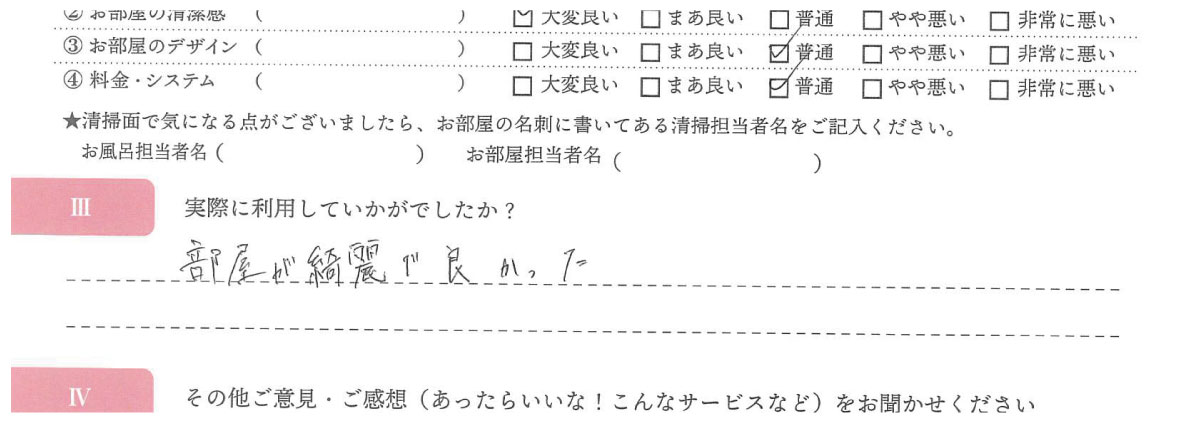 ② お部屋の清潔感 ( ) ☑ 大変良い □ まあ良い □ 普通 □ やや悪い □ 非常に悪い
③ お部屋のデザイン ( ) □ 大変良い □ まあ良い ☑ 普通 □ やや悪い □ 非常に悪い
④ 料金・システム ( ) □ 大変良い □ まあ良い ☑ 普通 □ やや悪い □ 非常に悪い
★清掃面で気になる点がございましたら、お部屋の名刺に書いてある清掃担当者名をご記入ください。
お風呂担当者名 ( ) お部屋担当者名 ( )
Ⅲ 実際に利用していかがでしたか？
部屋が綺麗で良かった
Ⅳ その他ご意見・ご感想（あったらいいな！こんなサービスなど）をお聞かせください